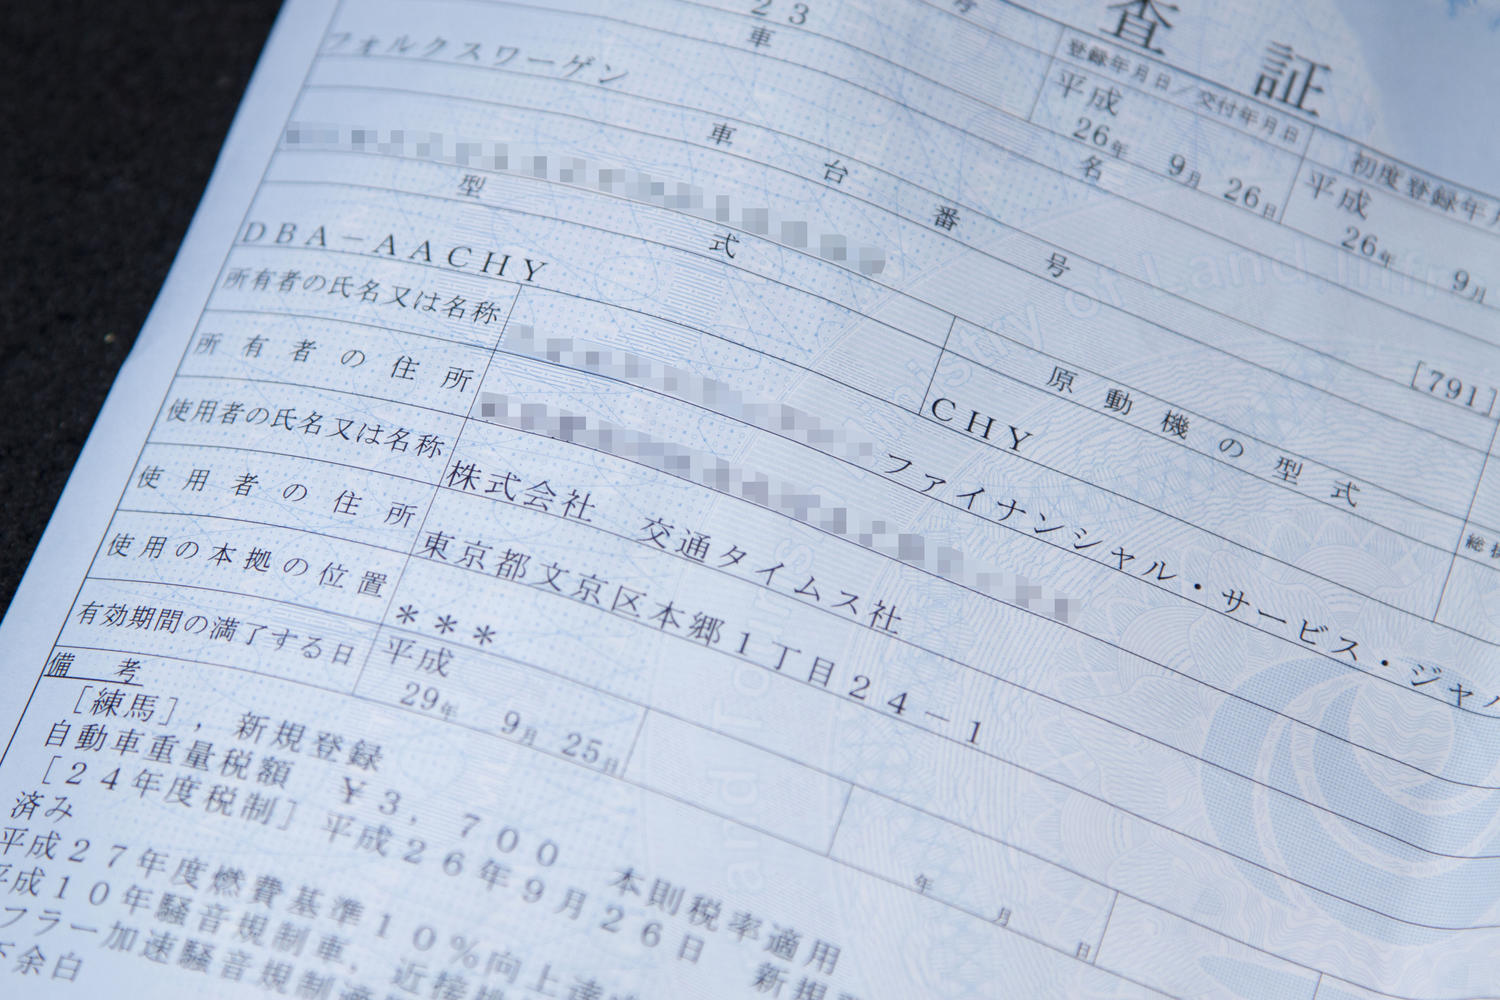 査証
23
号
登録年月日／交付年月日
初度登録年月
平成
26年 9月 26日
平成
26年 9月
車名
フォルクスワーゲン
[791]
車台番号
型式
DBA－AACHY
原動機の型式
CHY
総排
所有者の氏名又は名称
ファイナンシャル・サービス・ジャパ
所有者の住所
使用者の氏名又は名称
株式会社　交通タイムス社
使用者の住所
東京都文京区本郷1丁目24－1
使用の本拠の位置
＊＊＊
有効期間の満了する日
平成
29年 9月 25日
年 月 日
備考
［練馬］，新規登録
自動車重量税額　￥3，700　本則税率適用
［24年度税制］平成26年9月26日　新規
済み
平成27年度燃費基準10％向上達
平成10年騒音規制車，近接
フラー加速騒音規制適
余白
Land